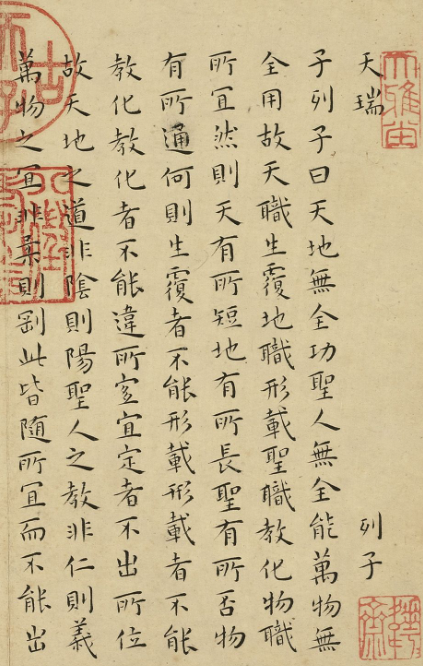 天瑞　列子
子列子曰天地無全功聖人無全能萬物無
全用故天職生覆地職形載聖職教化物職
所宜然則天有所短地有所長聖有所否物
有所通何則生覆者不能形載形載者不能
教化教化者不能違所宜宜定者不出所位
故天地之道非陰則陽聖人之教非仁則義
萬物之宜非柔則剛此皆隨所宜而不能出